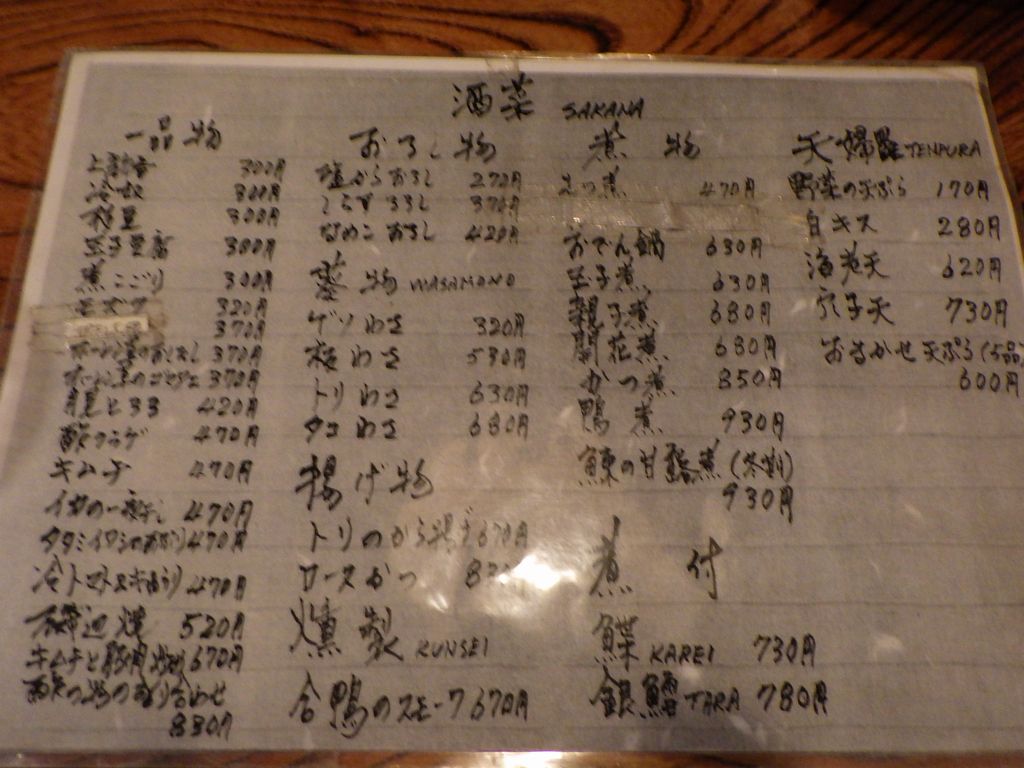 酒菜 SAKANA
一品物
上新香 300円
冷奴 300円
枝豆 300円
玉子豆腐 300円
煮こごり 300円
320円
370円
370円
370円
420円
酢クラゲ 470円
キムチ 470円
イカの一夜干し 470円
タタミイワシのあぶり 470円
冷トマト 470円
磯辺焼 520円
キムチと豚肉炒め 670円
酢の物の盛り合わせ
830円
おろし物
塩からおろし 270円
しらすおろし 370円
なめこおろし 420円
葵物 WASAMONO
ゲソわさ 320円
板わさ 530円
トリわさ 630円
タコわさ 680円
揚げ物
トリのから揚げ 670円
ロースかつ
燻製 KUNSEI
合鴨のスモーク 670円
煮物
もつ煮 470円
おでん鍋 630円
玉子煮 630円
親子煮 680円
開花煮 680円
かつ煮 850円
鴨煮 930円
鰊の甘露煮(本割)
930円
煮付
鰈 KAREI 730円
銀鱈 TARA 780円
天婦羅 TENPURA
野菜の天ぷら 170円
白キス 280円
海老天 620円
穴子天 730円
おまかせ天ぷら(5品)
600円